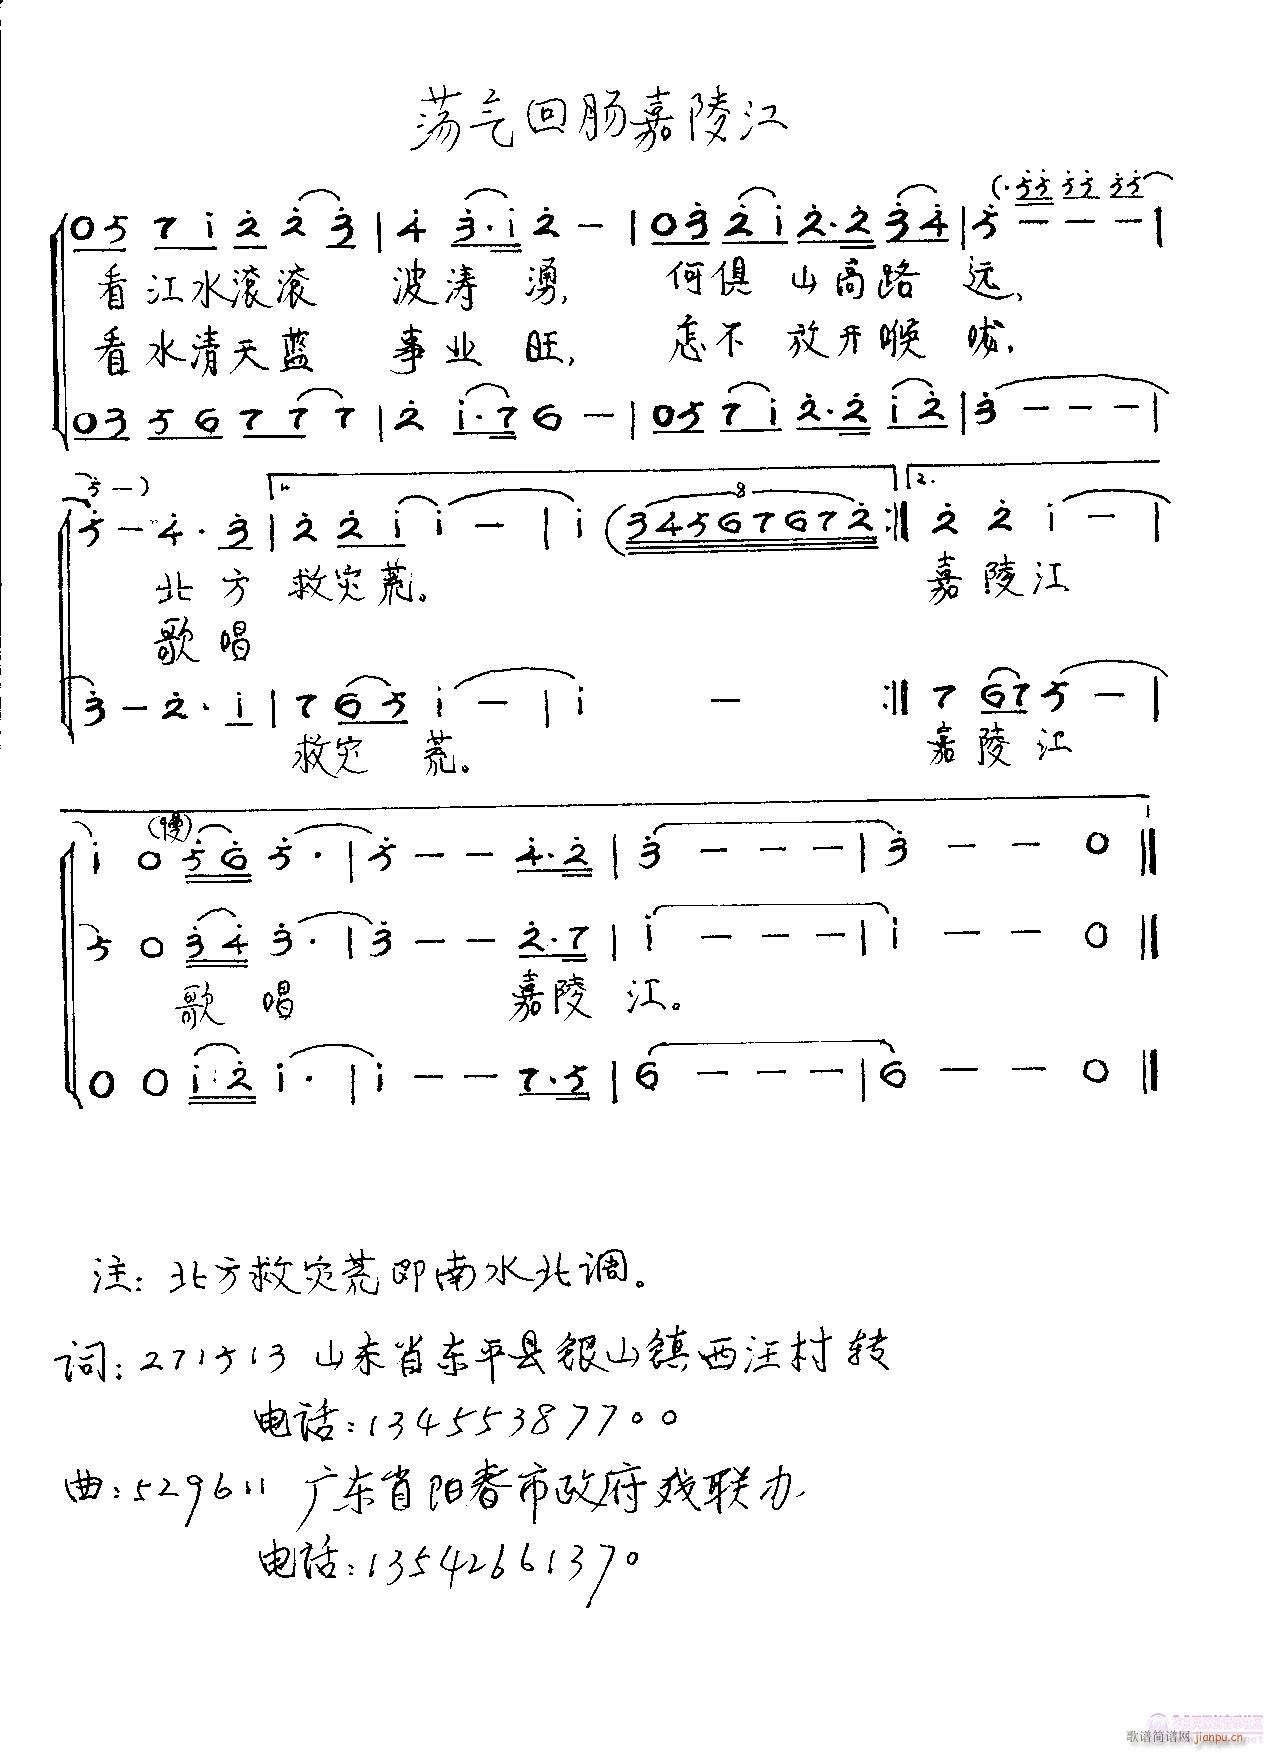 荡气回肠嘉陵江
(·5̇5̇ 5̇5̇ 5̇5̇
0 5 7 i 2̇ 2̇ 3̇ | 4̇ 3̇·i 2̇ — | 0 3̇ 2̇ i 2̇·2̇ 3̇ 4̇ | 5̇ — — — |
看江水滚滚 波涛 湧, 何惧 山高路 远,
看水清天蓝 事业 旺, 怎不 放开喉 咙,
0 3 5 6 7 7 7 | 2̇ i·7 6 — | 0 5 7 i 2̇·2̇ i 2̇ | 3̇ — — — |
5̇ —)
1. 2.
5̇ — 4̇· 3̇ | 2̇ 2̇ i i — | i (3 4 5 6 7 6 7 2̇ :|| 2̇ 2̇ i — |
8
北方 救灾荒。 嘉陵江
歌唱
3̇ — 2̇· i | 7 6 5 i — | i — :|| 7 6 7 5 — |
救灾 荒。 嘉陵江
(慢)
i 0 5̇ 6̇ 5̇· | 5̇ — — 4̇·2̇ | 3̇ — — — | 3̇ — — 0 ||
5 0 3̇ 4̇ 3̇· | 3̇ — — 2̇·7 | i — — — | i — — 0 ||
歌 唱 嘉陵 江。
0 0 i 2̇ i· | i — — 7·5 | 6 — — — | 6 — — 0 ||
注: 北方救灾荒即南水北调。
词: 271513 山东省东平县银山镇西汪村转
电话: 13455387700
曲: 529611 广东省阳春市政府戏联办
电话: 13542661370
歌谱简谱网 jianpu.cn